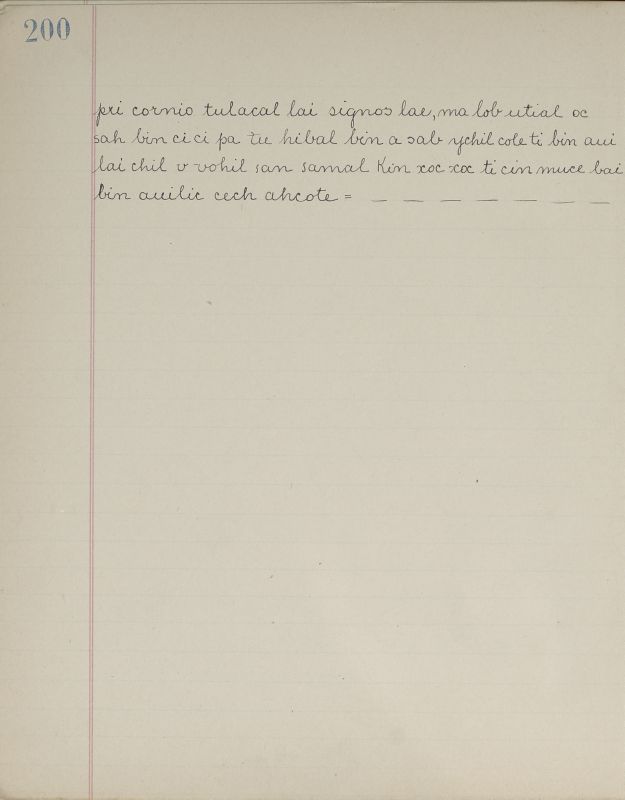 200
pri cornio tulacal lai signos lae, ma lob utial oc
sah bin ci ci pa tu hibal bin a sab ychil cole ti bin aui
lai chil v vohil san samal Kin xoc xoc ti cin muce bai
bin auilic cech ahcote = _ _ _ _ _ _ _